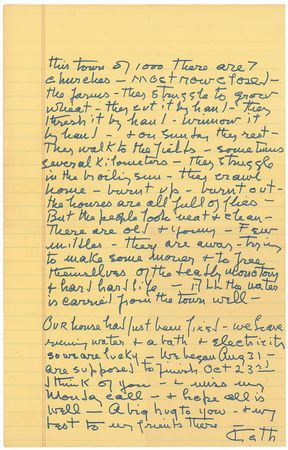 this town of 1000 there are 7
churches — most now closed —
the farms — they struggle to grow
wheat — they cut it by hand — they
thresh it by hand — winnow it
by hand — & on sunday they rest —
They walk to the fields — sometimes
several kilometers — They struggle
in the broiling sun — they crawl
home — burnt up — burnt out —
the houses are all full of flies —
But the people look neat & clean —
There are old & young — Few
middles — they are away — trying
to make some money & to free
themselves of the deadly monotony
& hard hard life — all the water
is carried from the town well —
Our house has just been fixed — we have
running water & a bath & electricity
so we are lucky — We began Aug 31 —
are supposed to finish Oct 23rd
I think of you — & miss my
Monday call — & hope all is
well — A big hug to you — & my
best to my friends there
Kath